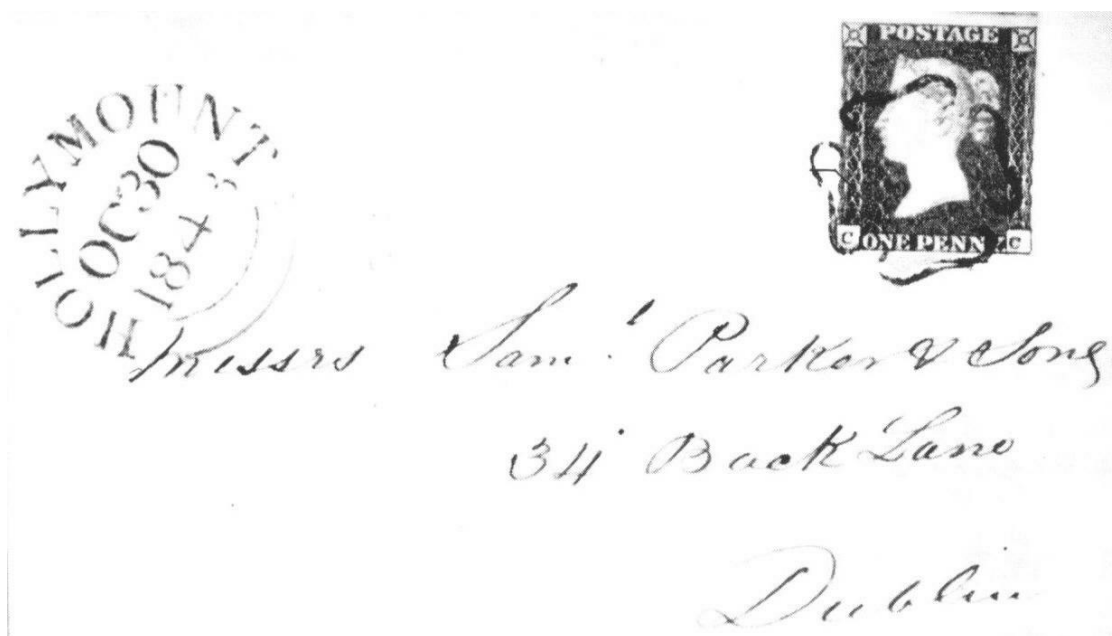 HOLLYMOUNT
OC 30
1843
POSTAGE
C ONE PENNY C
Messrs Saml. Parker & Sons
34 Back Lane
Dublin